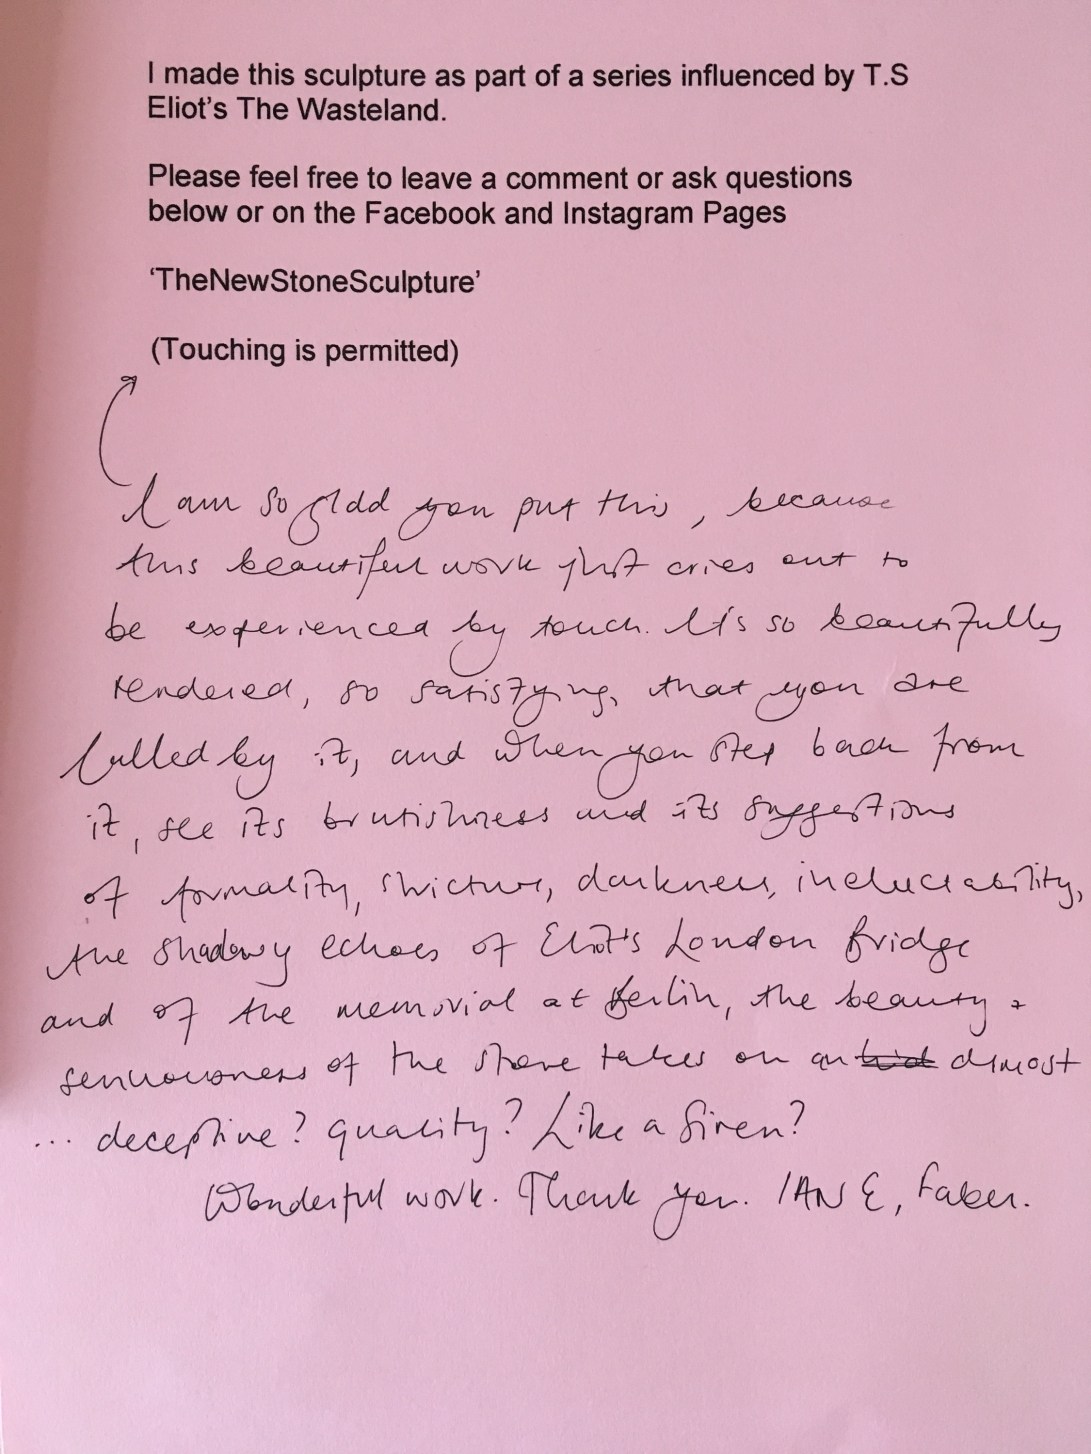 I made this sculpture as part of a series influenced by T.S
Eliot's The Wasteland.
Please feel free to leave a comment or ask questions
below or on the Facebook and Instagram Pages
'TheNewStoneSculpture'
(Touching is permitted)
I am so glad you put this, because
this beautiful work just cries out to
be experienced by touch. It's so beautifully
rendered, so satisfying, that you are
lulled by it, and when you step back from
it, see its brutishness and its suggestions
of formality, stricture, darkness, ineluctability,
the shadowy echoes of Eliot's London Bridge
and of the memorial at Berlin, the beauty +
sensuousness of the stone takes on an almost
... deceptive? quality? Like a Siren?
Wonderful work. Thank you. IAN E, Faber.